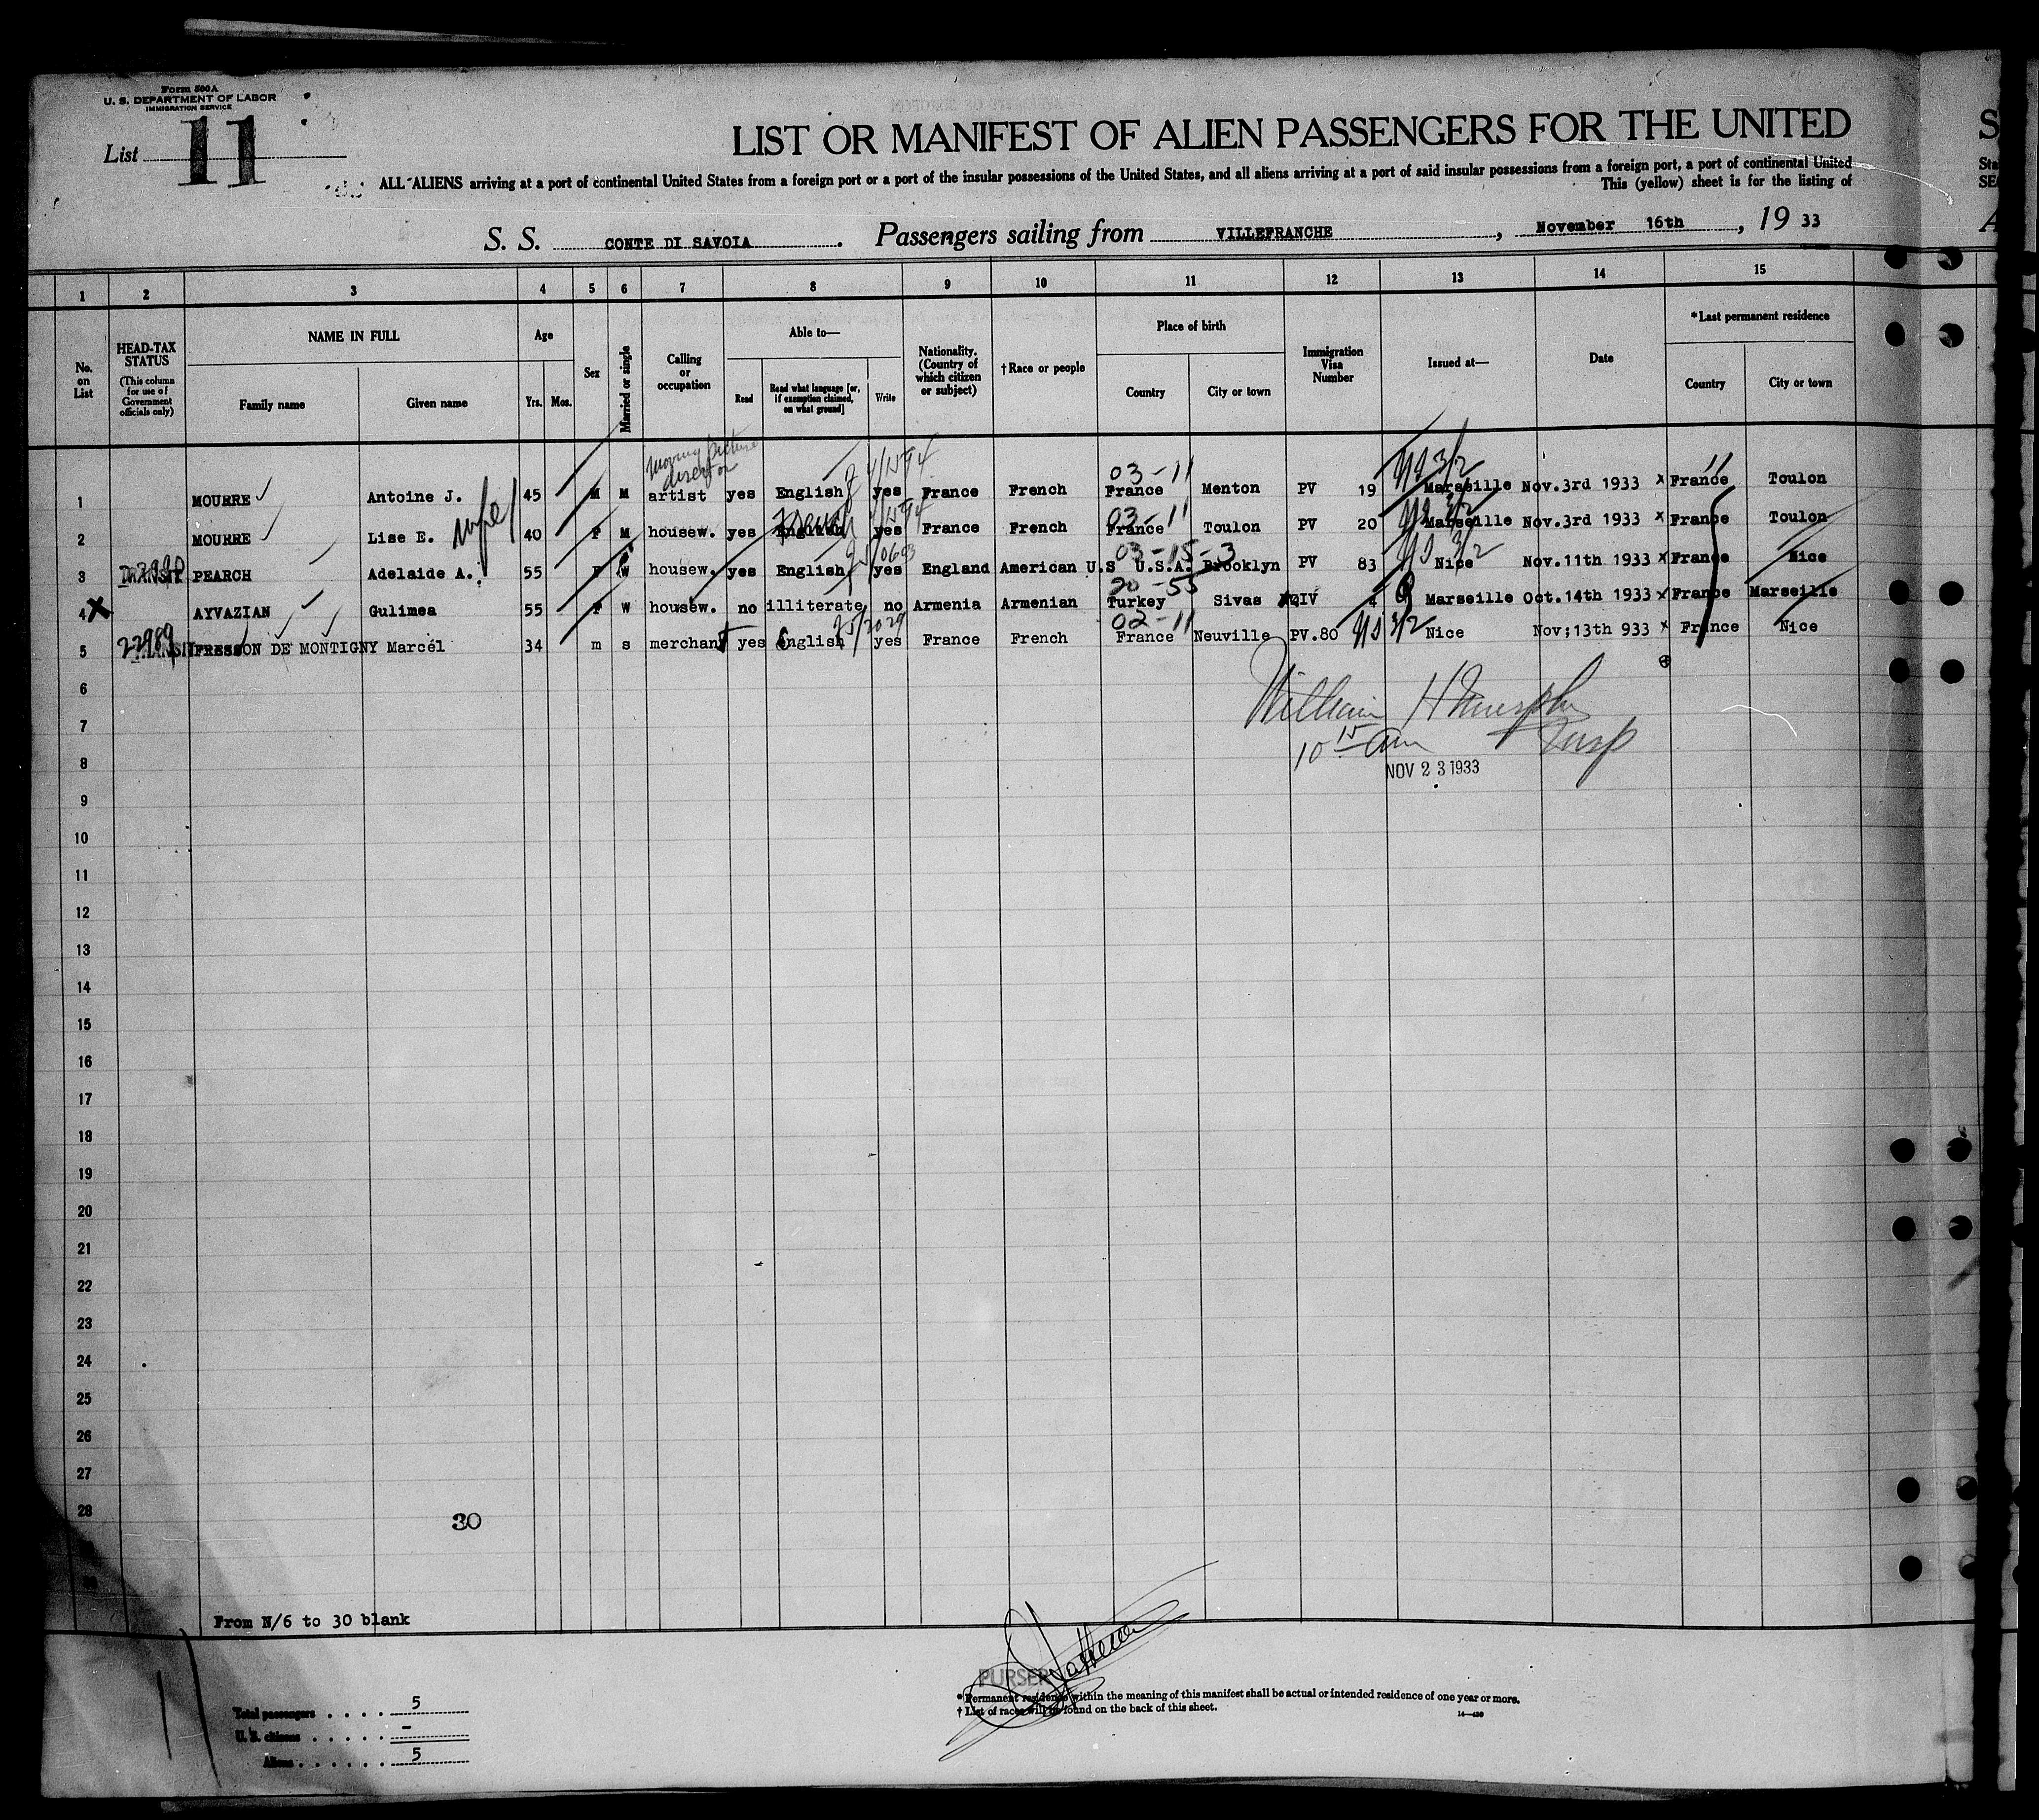 Form 500A
U. S. DEPARTMENT OF LABOR
IMMIGRATION SERVICE
List 11
LIST OR MANIFEST OF ALIEN PASSENGERS FOR THE UNITED
ALL ALIENS arriving at a port of continental United States from a foreign port or a port of the insular possessions of the United States, and all aliens arriving at a port of said insular possessions from a foreign port, a port of continental United
This (yellow) sheet is for the listing of
S. S. CONTE DI SAVOIA. Passengers sailing from VILLEFRANCHE, November 16th, 19 33
1 2 3 4 5 6 7 8 9 10 11 12 13 14 15
No. on List
HEAD-TAX STATUS (This column for use of Government officials only)
NAME IN FULL
Family name Given name
Age
Yrs. Mos.
Sex
Married or single
Calling or occupation
Able to—
Read Read what language [or, if exemption claimed, on what ground] Write
Nationality. (Country of which citizen or subject)
†Race or people
Place of birth
Country City or town
Immigration Visa Number
Issued at—
Date
*Last permanent residence
Country City or town
moving picture director
03-11
1 MOURRE Antoine J. 45 M M artist yes English yes France French France Menton PV 19 Marseille Nov.3rd 1933 x France Toulon
wife French 03-11
2 MOURRE Lise E. 40 F M housew. yes English yes France French France Toulon PV 20 Marseille Nov.3rd 1933 x France Toulon
03-15-3
3 TRANSIT PEARCH Adelaide A. 55 F W housew. yes English yes England American U.S U.S.A. Brooklyn PV 83 Nice Nov.11th 1933 x France Nice
20-55
4 X AYVAZIAN Gulimea 55 F W housew. no illiterate no Armenia Armenian Turkey Sivas QIV 4 Marseille Oct.14th 1933 x France Marseille
02-11
5 22989 FRESSON DE MONTIGNY Marcel 34 m s merchant yes English yes France French France Neuville PV.80 Nice Nov;13th 933 x France Nice
6
William H Murphy
7
10 15 am Insp
8
NOV 23 1933
9
10
11
12
13
14
15
16
17
18
19
20
21
22
23
24
25
26
27
28
30
From N/6 to 30 blank
PURSER
Total passengers 5
U. S. citizens -
Aliens 5
* Permanent residence within the meaning of this manifest shall be actual or intended residence of one year or more.
† List of races will be found on the back of this sheet.